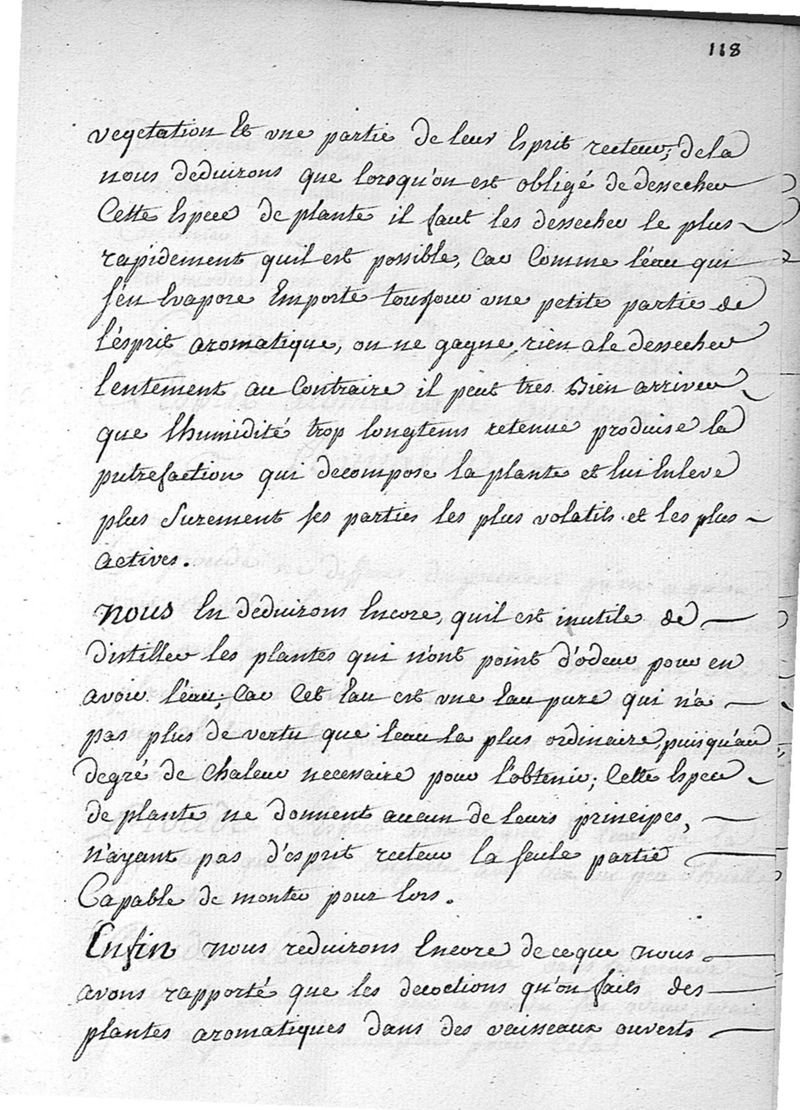 118
vegetation Et une partie de leur Esprit recteur, de la
nous deduirons que lorsqu'on est obligé de dessecher
Cette Espece de plante il faut les dessecher le plus
rapidement quil est possible, Car Comme l'éau qui
s'en Evapore Emporte toujour une petite partie de
l'ésprit aromatique, on ne gagne rien a le dessecher
lentement au Contraire il peut tres Bien arriver
que lhumidité trop longtems retenue produise la
putrefaction qui decompose la plante et lui Enleve
plus Surement ses parties les plus volatils et les plus
actives.
nous En deduirons Encore, quil est inutile de
distiller les plantes qui n'ont point d'odeur pour en
avoir l'éau; Car Cet Eau est une Eau pure qui n'a
pas plus de vertu que l'eau la plus ordinaire, puisqu'au
degré de Chaleur necessaire pour l'obtenir; Cette Espece
de plante ne donnent aucun de leurs principes,
n'ayant pas d'esprit recteur la seule partie
Capable de monter pour lors.
Enfin nous reduirons Encore de ce que nous
avons rapporté que les decoctions qu'on faits des
plantes aromatiques dans des vaisseaux ouverts